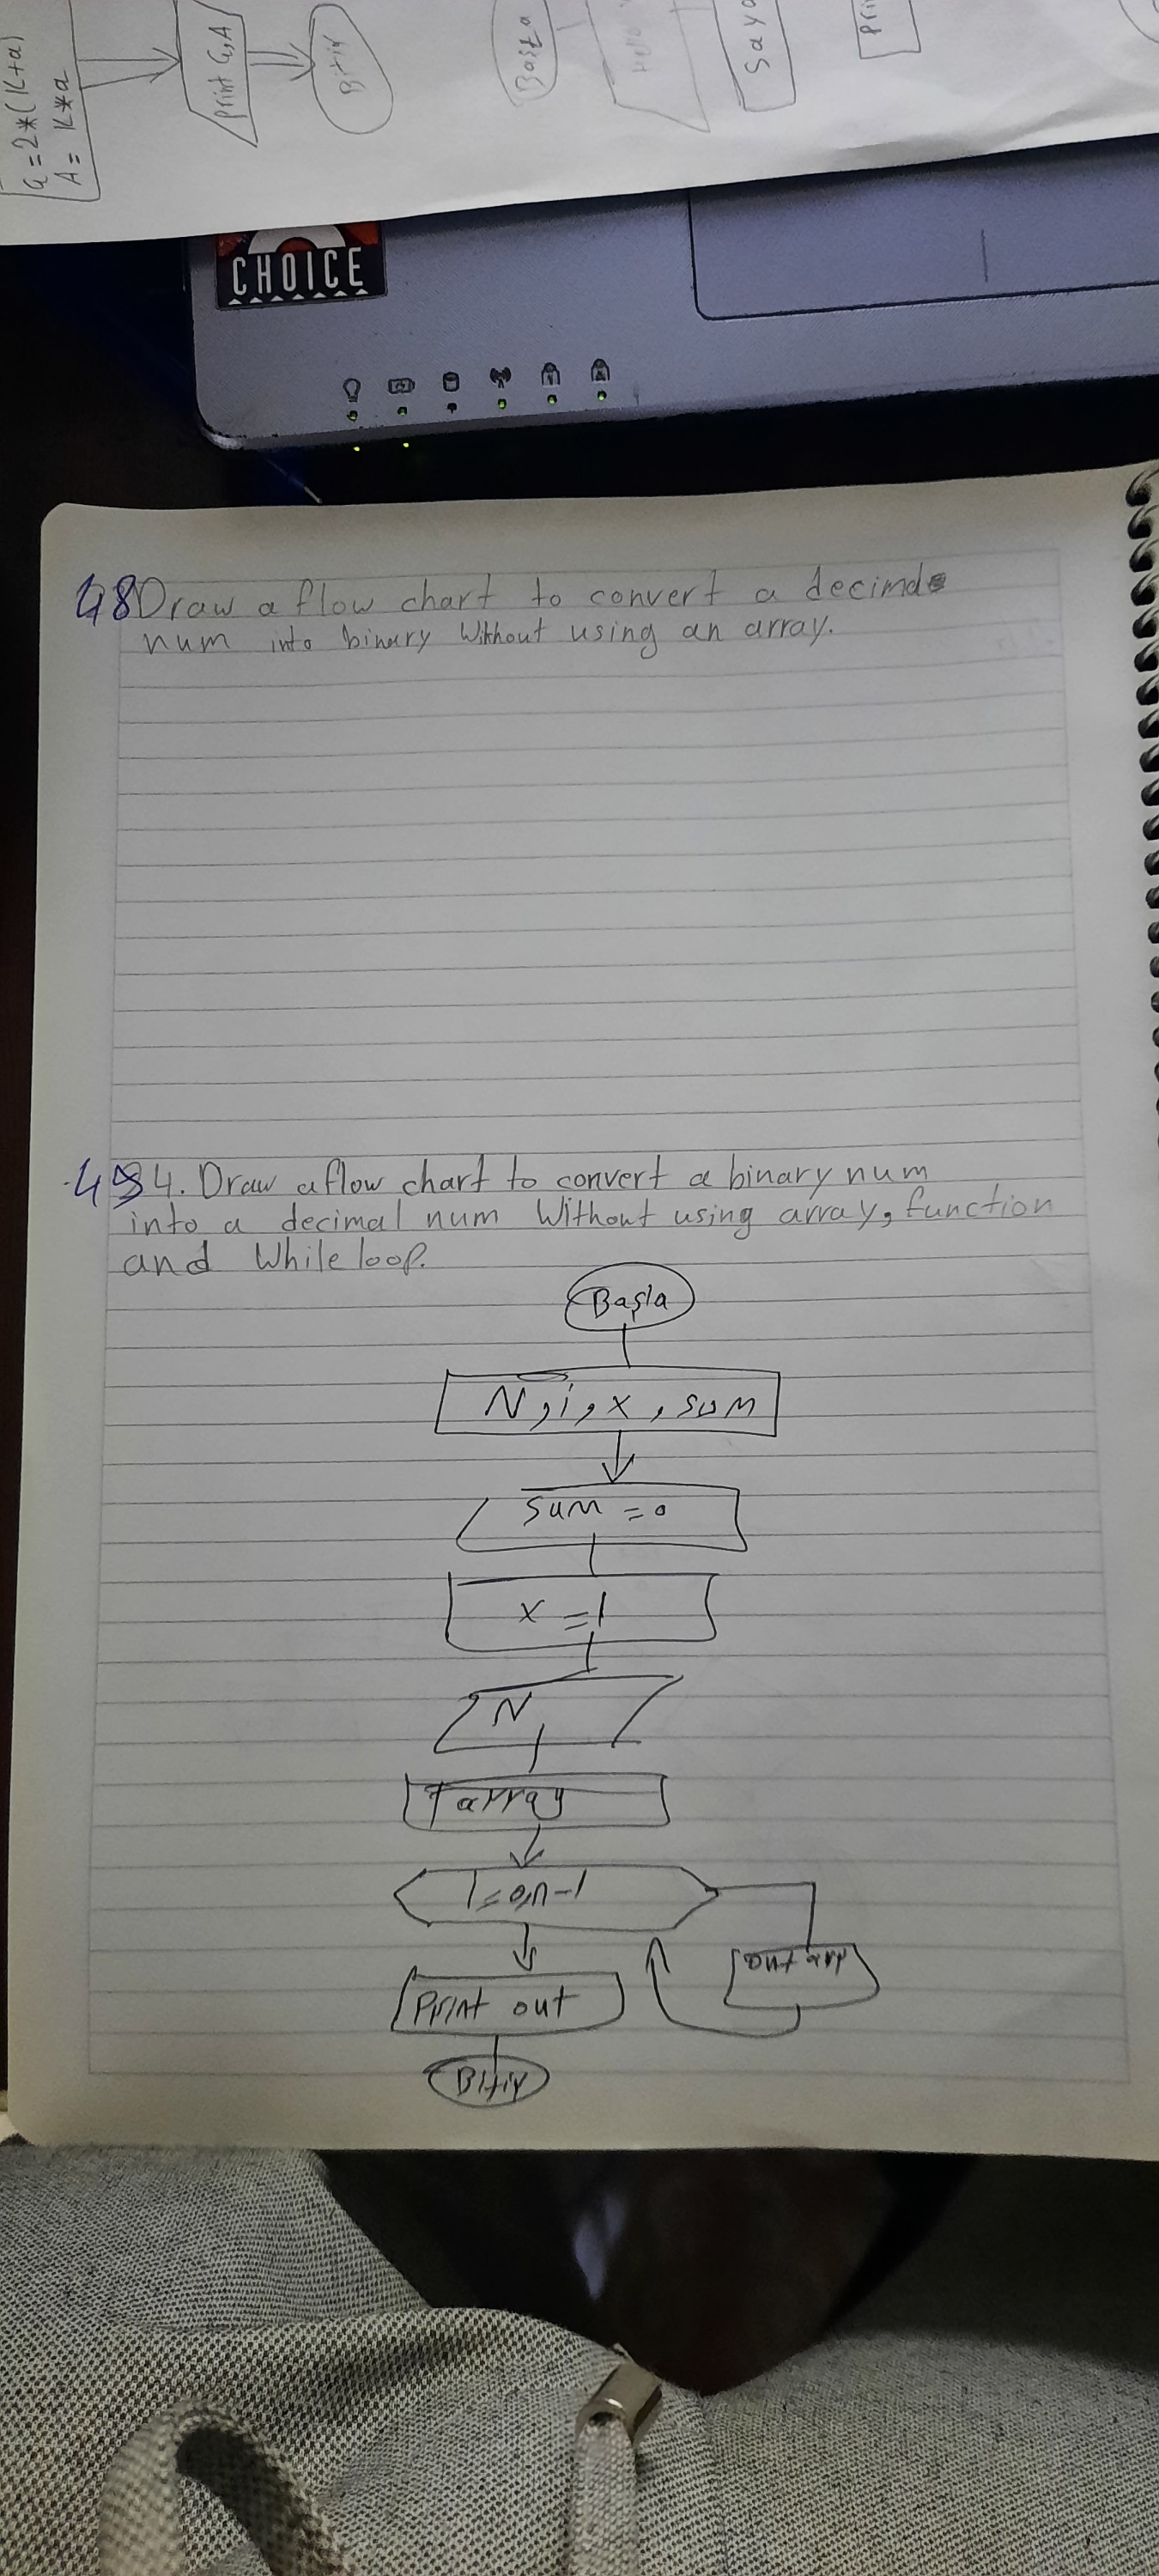 a=2*(K+a)
A= K*a
Print G,A
Bitir
Başla
Hello
Saya
Pri
CHOICE
48 Draw a flow chart to convert a decimal
num into binary Without using an array.
4. Draw a flow chart to convert a binary num
into a decimal num Without using array, function
and While loop.
Başla
N, i, x, sum
sum = 0
x = 1
N
array
I = 0, n-1
out arr
Print out
Bitir